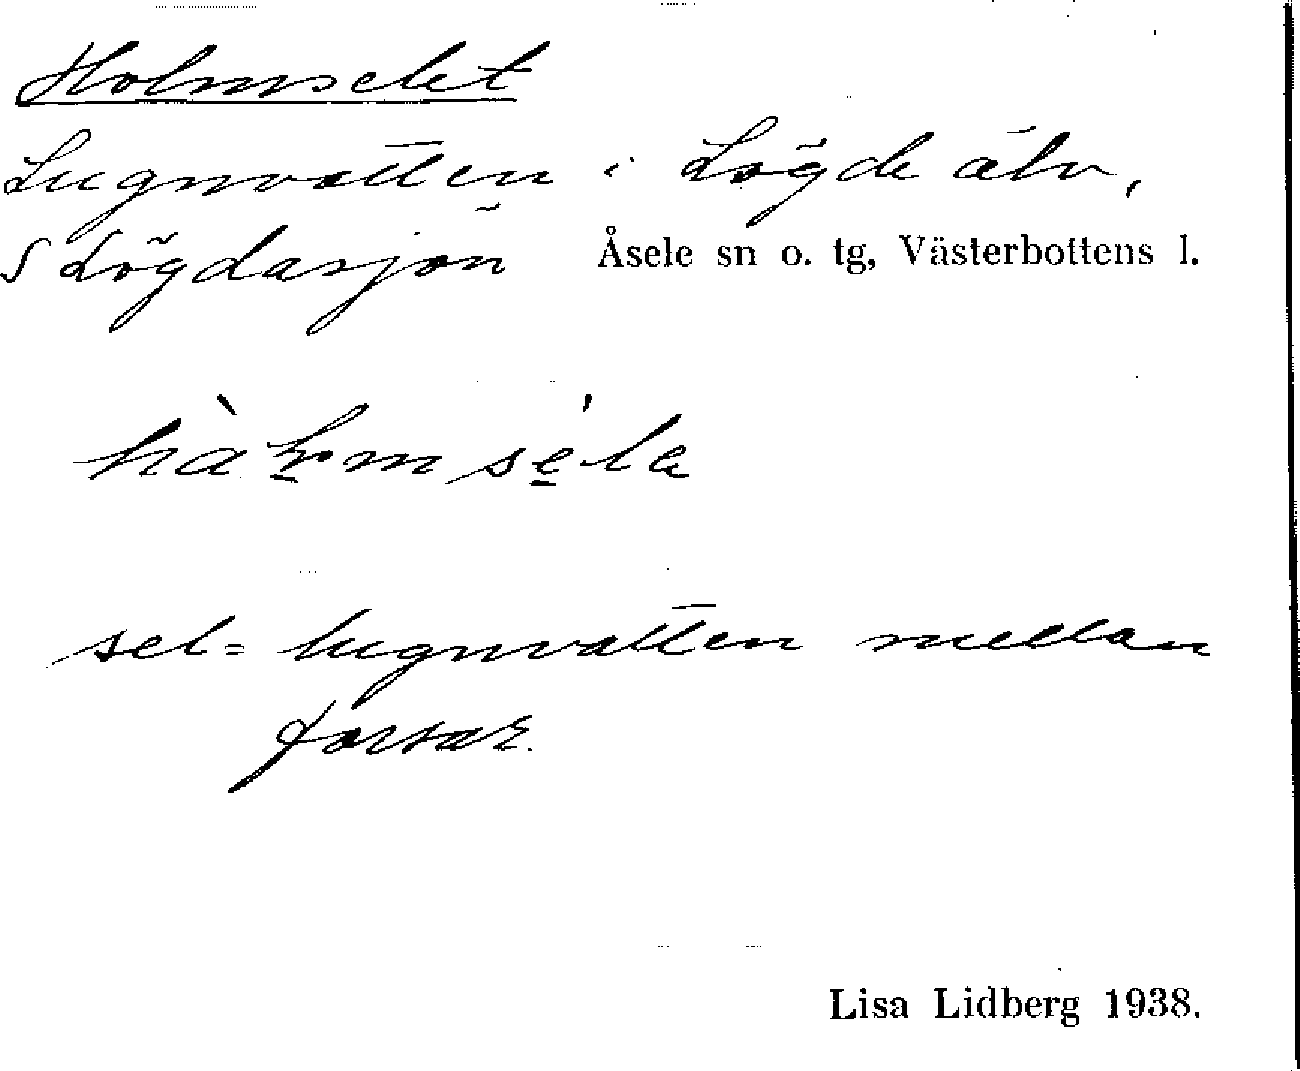 Holmselet
Lugnvatten i Lögde älv,
S Lögdasjön Åsele sn o. tg, Västerbottens l.
sel = lugnvatten mellan
forsar.
Lisa Lidberg 1938.